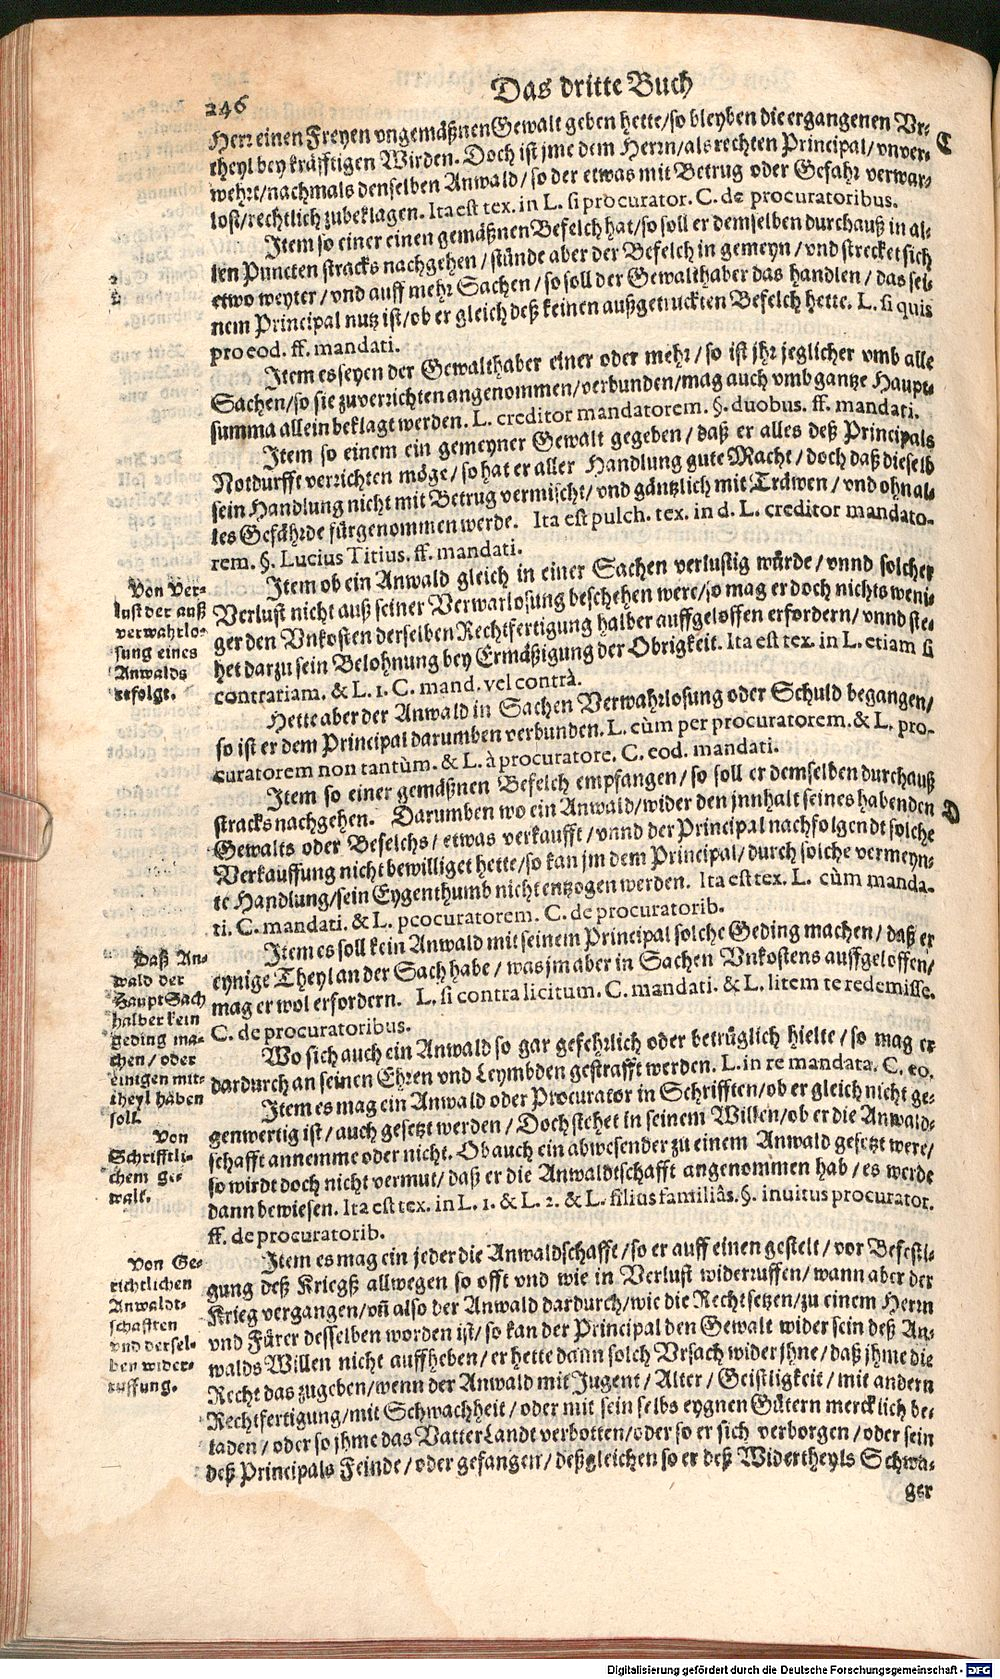 Das dritte Buch
246
Herr einen Freyen vngemäßnen Gewalt geben hette/so bleyben die ergangenen Vr-
theyl bey kräfftigen Wirden. Doch ist jme dem Herrn/als rechten Principal/vnver-
C
wehrt/nachmals denselben Anwald/so der etwas mit Betrug oder Gefahr verwar-
lost/rechtlich zubeklagen. Ita est tex. in L. si procurator. C. de procuratoribus.
Item so einer einen gemäßnen Befelch hat/so soll er demselben durchauß in al-
len Puncten stracks nachgehen/stünde aber der Befelch in gemeyn/vnd strecket sich
etwo weyter/vnd auff mehr Sachen/so soll der Gewalthaber das handlen/das sei-
nem Principal nutz ist/ob er gleich deß keinen außgetruckten Befelch hette. L. si quis
pro eod. ff. mandati.
Item es seyen der Gewalthaber einer oder mehr/so ist jhr jeglicher vmb alle
Sachen/so sie zuverrichten angenommen/verbunden/mag auch vmb gantze Haupt-
summa allein beklagt werden. L. creditor mandatorem. §. duobus. ff. mandati.
Item so einem ein gemeyner Gewalt gegeben/daß er alles deß Principals
Notdurfft verrichten möge/so hat er aller Handlung gute Macht/doch daß dieselb
sein Handlung nicht mit Betrug vermischt/vnd gäntzlich mit Träwen/vnd ohn al-
les Gefährde fürgenommen werde. Ita est pulch. tex. in d. L. creditor mandato-
rem. §. Lucius Titius. ff. mandati.
Von Ver-
lust der auß
verwahrlo-
sung eines
Anwalds
erfolgt.
Item ob ein Anwald gleich in einer Sachen verlustig würde/vnnd solcher
Verlust nicht auß seiner Verwarlosung beschehen were/so mag er doch nichts weni-
ger den Vnkosten derselben Rechtfertigung halber auffgeloffen erfordern/vnnd ste-
het darzu sein Belohnung bey Ermäßigung der Obrigkeit. Ita est tex. in L. etiam si
contrariam. & L. 1. C. mand. vel contrà.
Hette aber der Anwald in Sachen Verwahrlosung oder Schuld begangen/
so ist er dem Principal darumben verbunden. L. cùm per procuratorem. & L. pro-
curatorem non tantùm. & L. à procuratore. C. eod. mandati.
Item so einer gemäßnen Befelch empfangen/so soll er demselben durchauß
stracks nachgehen. Darumben wo ein Anwald/wider den jnnhalt seines habenden
D
Gewalts oder Befelchs/etwas verkaufft/vnnd der Principal nachfolgendt solche
Verkauffung nicht bewilliget hette/so kan jm dem Principal/durch solche vermeyn-
te Handlung/sein Eygenthumb nicht entzogen werden. Ita est tex. L. cùm manda-
ti. C. mandati. & L. pcocuratorem. C. de procuratorib.
Daß An-
wald der
Haupt Sach
halber kein
geding ma-
chen/oder
einigen mit-
theyl haben
soll.
Item es soll kein Anwald mit seinem Principal solche Geding machen/daß er
eynige Theyl an der Sach habe/was jm aber in Sachen Vnkostens auffgeloffen/
mag er wol erfordern. L. si contra licitum. C. mandati. & L. litem te redemisse.
C. de procuratoribus.
Wo sich auch ein Anwald so gar gefehrlich oder betrüglich hielte/so mag er
dardurch an seinen Ehren vnd Leymbden gestrafft werden. L. in re mandata. C. eo.
Von
Schrifftli-
chem ge-
walt.
Item es mag ein Anwald oder Procurator in Schrifften/ob er gleich nicht ge-
genwertig ist/auch gesetzt werden/Doch stehet in seinem Willen/ob er die Anwald-
schafft annemme oder nicht. Ob auch ein abwesender zu einem Anwald gesetzt were/
so wirdt doch nicht vermut/daß er die Anwaldtschafft angenommen hab/es werde
dann bewiesen. Ita est tex. in L. 1. & L. 2. & L. filius familiâs. §. inuitus procurator.
ff. de procuratorib.
Von Ge-
richtlichen
Anwaldt-
schafften
vnd dersel-
ben wider-
ruffung.
Item es mag ein jeder die Anwaldschafft/so er auff einen gestelt/vor Befesti-
gung deß Kriegß allwegen so offt vnd wie in Verlust widerruffen/wann aber der
Krieg vergangen/vñ also der Anwald dardurch/wie die Recht setzen/zu einem Herrn
vnd Fürer desselben worden ist/so kan der Principal den Gewalt wider sein deß An-
walds Willen nicht auffheben/er hette dann solch Vrsach wider jhne/daß jhme die
Recht das zugeben/wenn der Anwald mit Jugent/Alter/Geistligkeit/mit andern
Rechtfertigung/mit Schwachheit/oder mit sein selbs eygnen Gütern mercklich be-
laden/oder so jhme das Vatter Landt verbotten/oder so er sich verborgen/oder sein
deß Principals Feinde/oder gefangen/deßgleichen so er deß Widertheyls Schwa-
ger
Digitalisierung gefördert durch die Deutsche Forschungsgemeinschaft - DFG